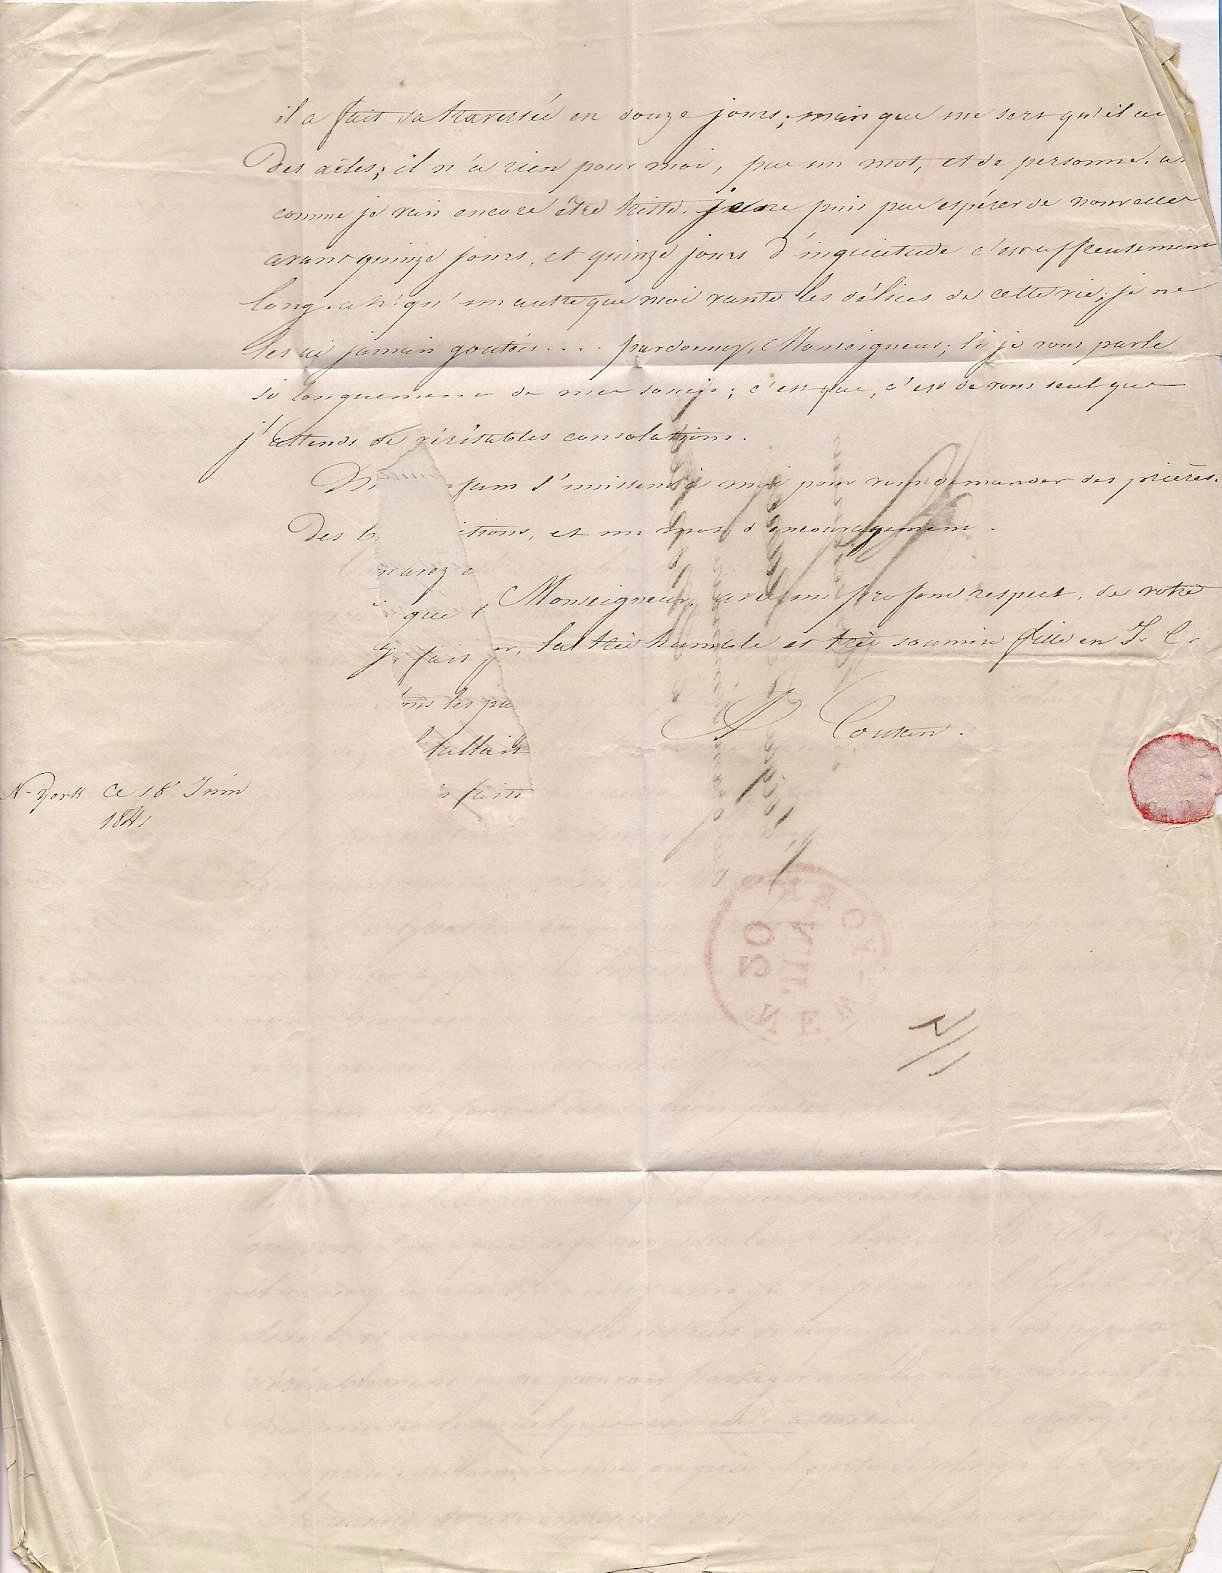 il a fait sa traversée en douze jours; mais que me sert qu'il ait
des aîles; il n'a rien pour moi, pas un mot, et de personne.
comme je vais encore être triste. je ne puis pas espérer de nouvelles
avant quinze jours, et quinze jours d'inquiétude c'est affreusement
long. ah! qu'un autre que moi vante les délices de cette vie, je ne
les ai jamais goutés.... pardonnez, Monseigneur, si je vous parle
si longuement de mes soucis; c'est que, c'est de vous seul que
j'attends de véritables consolations.
s'unissent à moi pour vous demander des prières.
des et un mot d'encouragement.
Monseigneur, avec un profond respect, de votre
que
fais la très humble et très soumise fille en J. C.
les pa
fallait
faits
N-York ce 18 Juin
1841
NEW-YORK
JUN
20